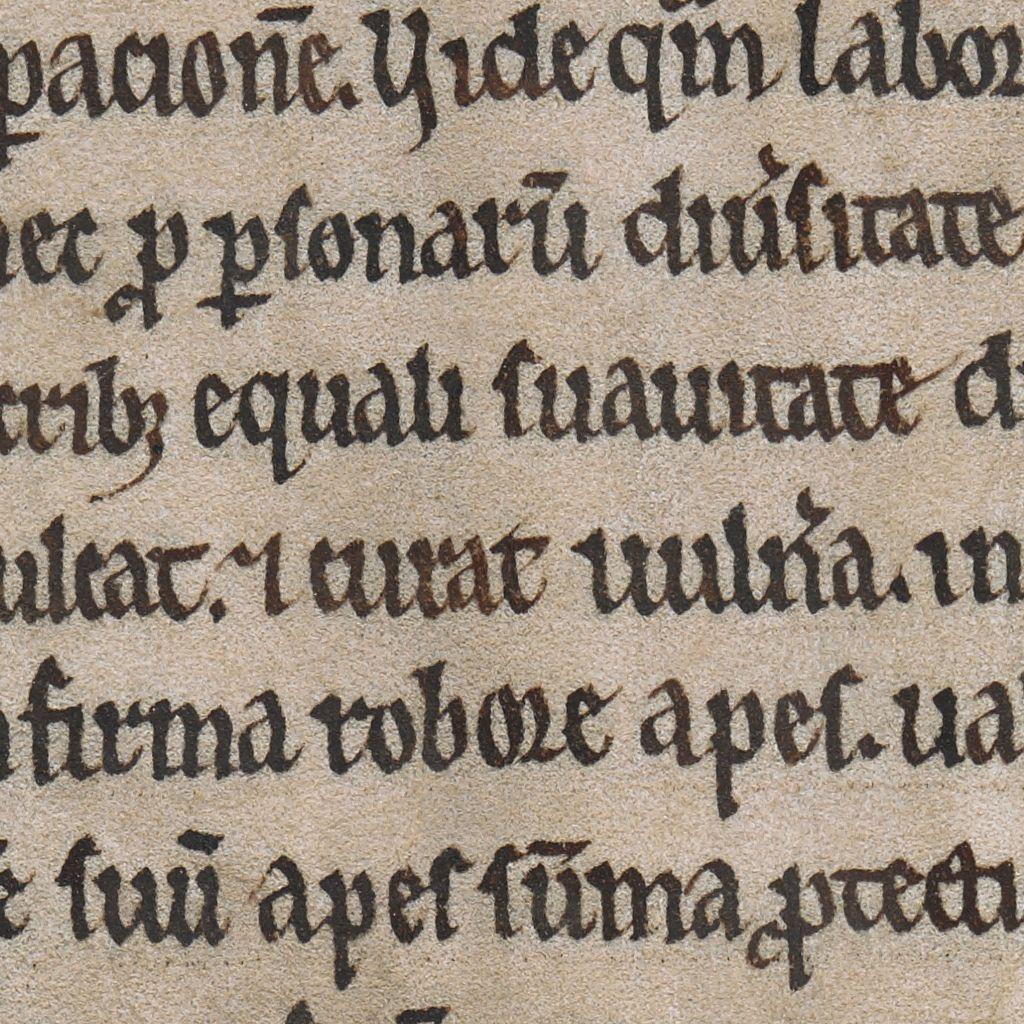 pacionē. Vide qm̄ labor
ꝓ ꝑsonarū diuˀsitate
ribꝫ equali suauitate
ultat. ⁊ curat uulnˀa. in
firma robore apes. ua
suū apes sūma ꝓtecti